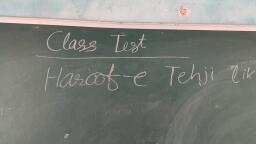 Class Test
Haroof-e Tehji lik